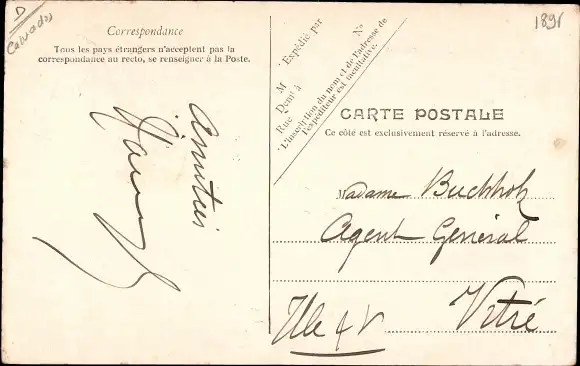 D
Calvados
Correspondance
Tous les pays étrangers n'acceptent pas la
correspondance au recto, se renseigner à la Poste.
Amitiés
Expédié par
M
Demt à
Rue
No
L'inscription du nom et de l'adresse de
l'expéditeur est facultative.
CARTE POSTALE
Ce côté est exclusivement réservé à l'adresse.
Madame Buckholz
Agent Général
Vitré
Ille & V